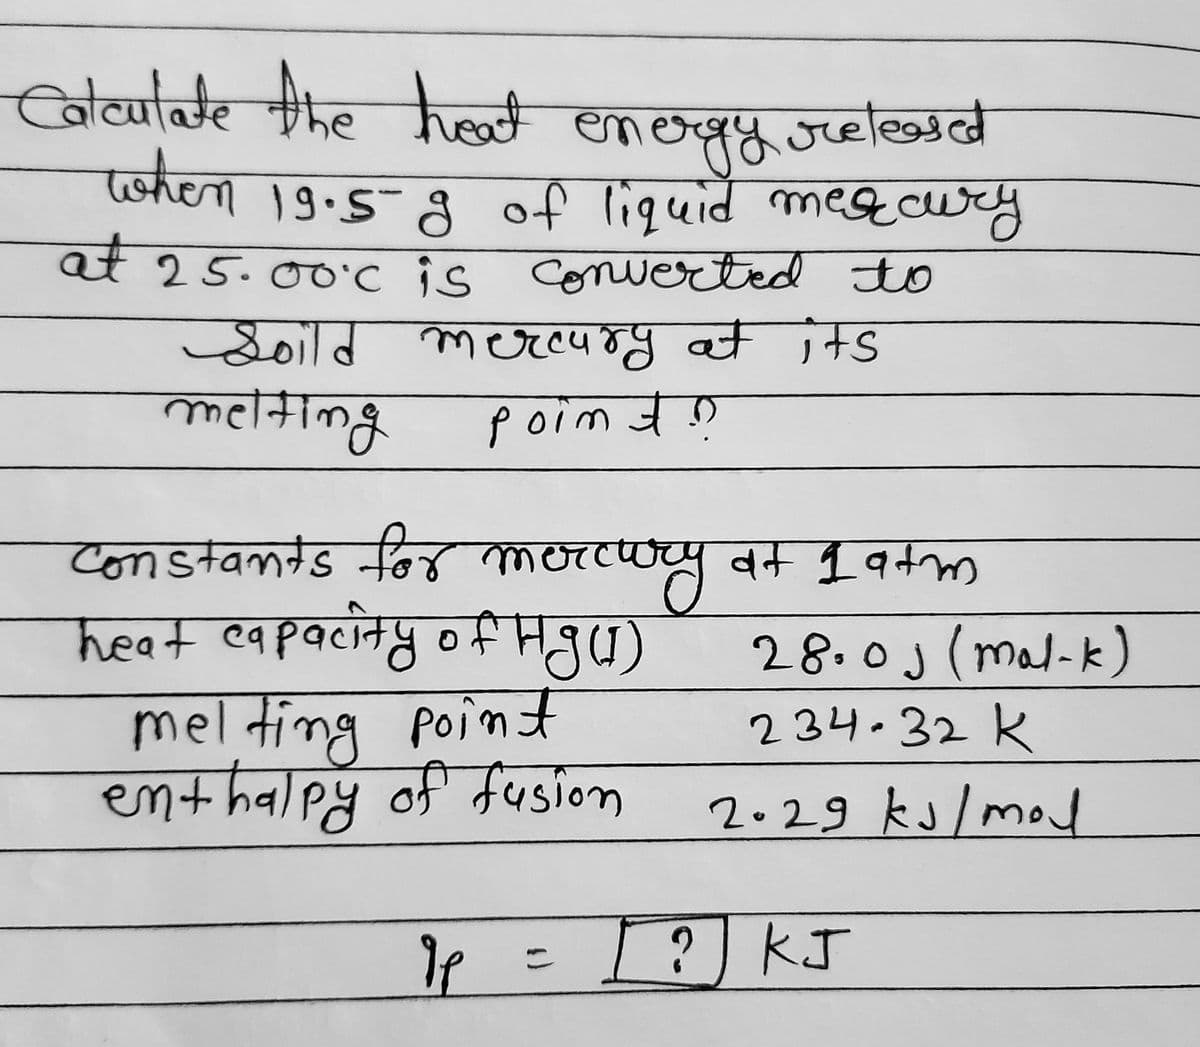 Calculate the heat energy released
when 19.5-g of liquid mercury
at 25.00°C is converted to
Soild mercury at its
melting point?
Constants for mercury at 1 atm
heat capacity of Hg(I) 28.0 J (mol-k)
melting point 234.32 K
enthalpy of fusion 2.29 kJ/mol
qp = [?] KJ